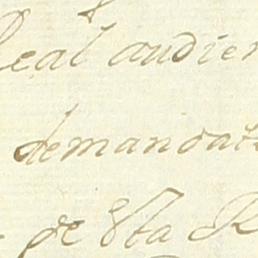 Real audien
demandat
de Vta R